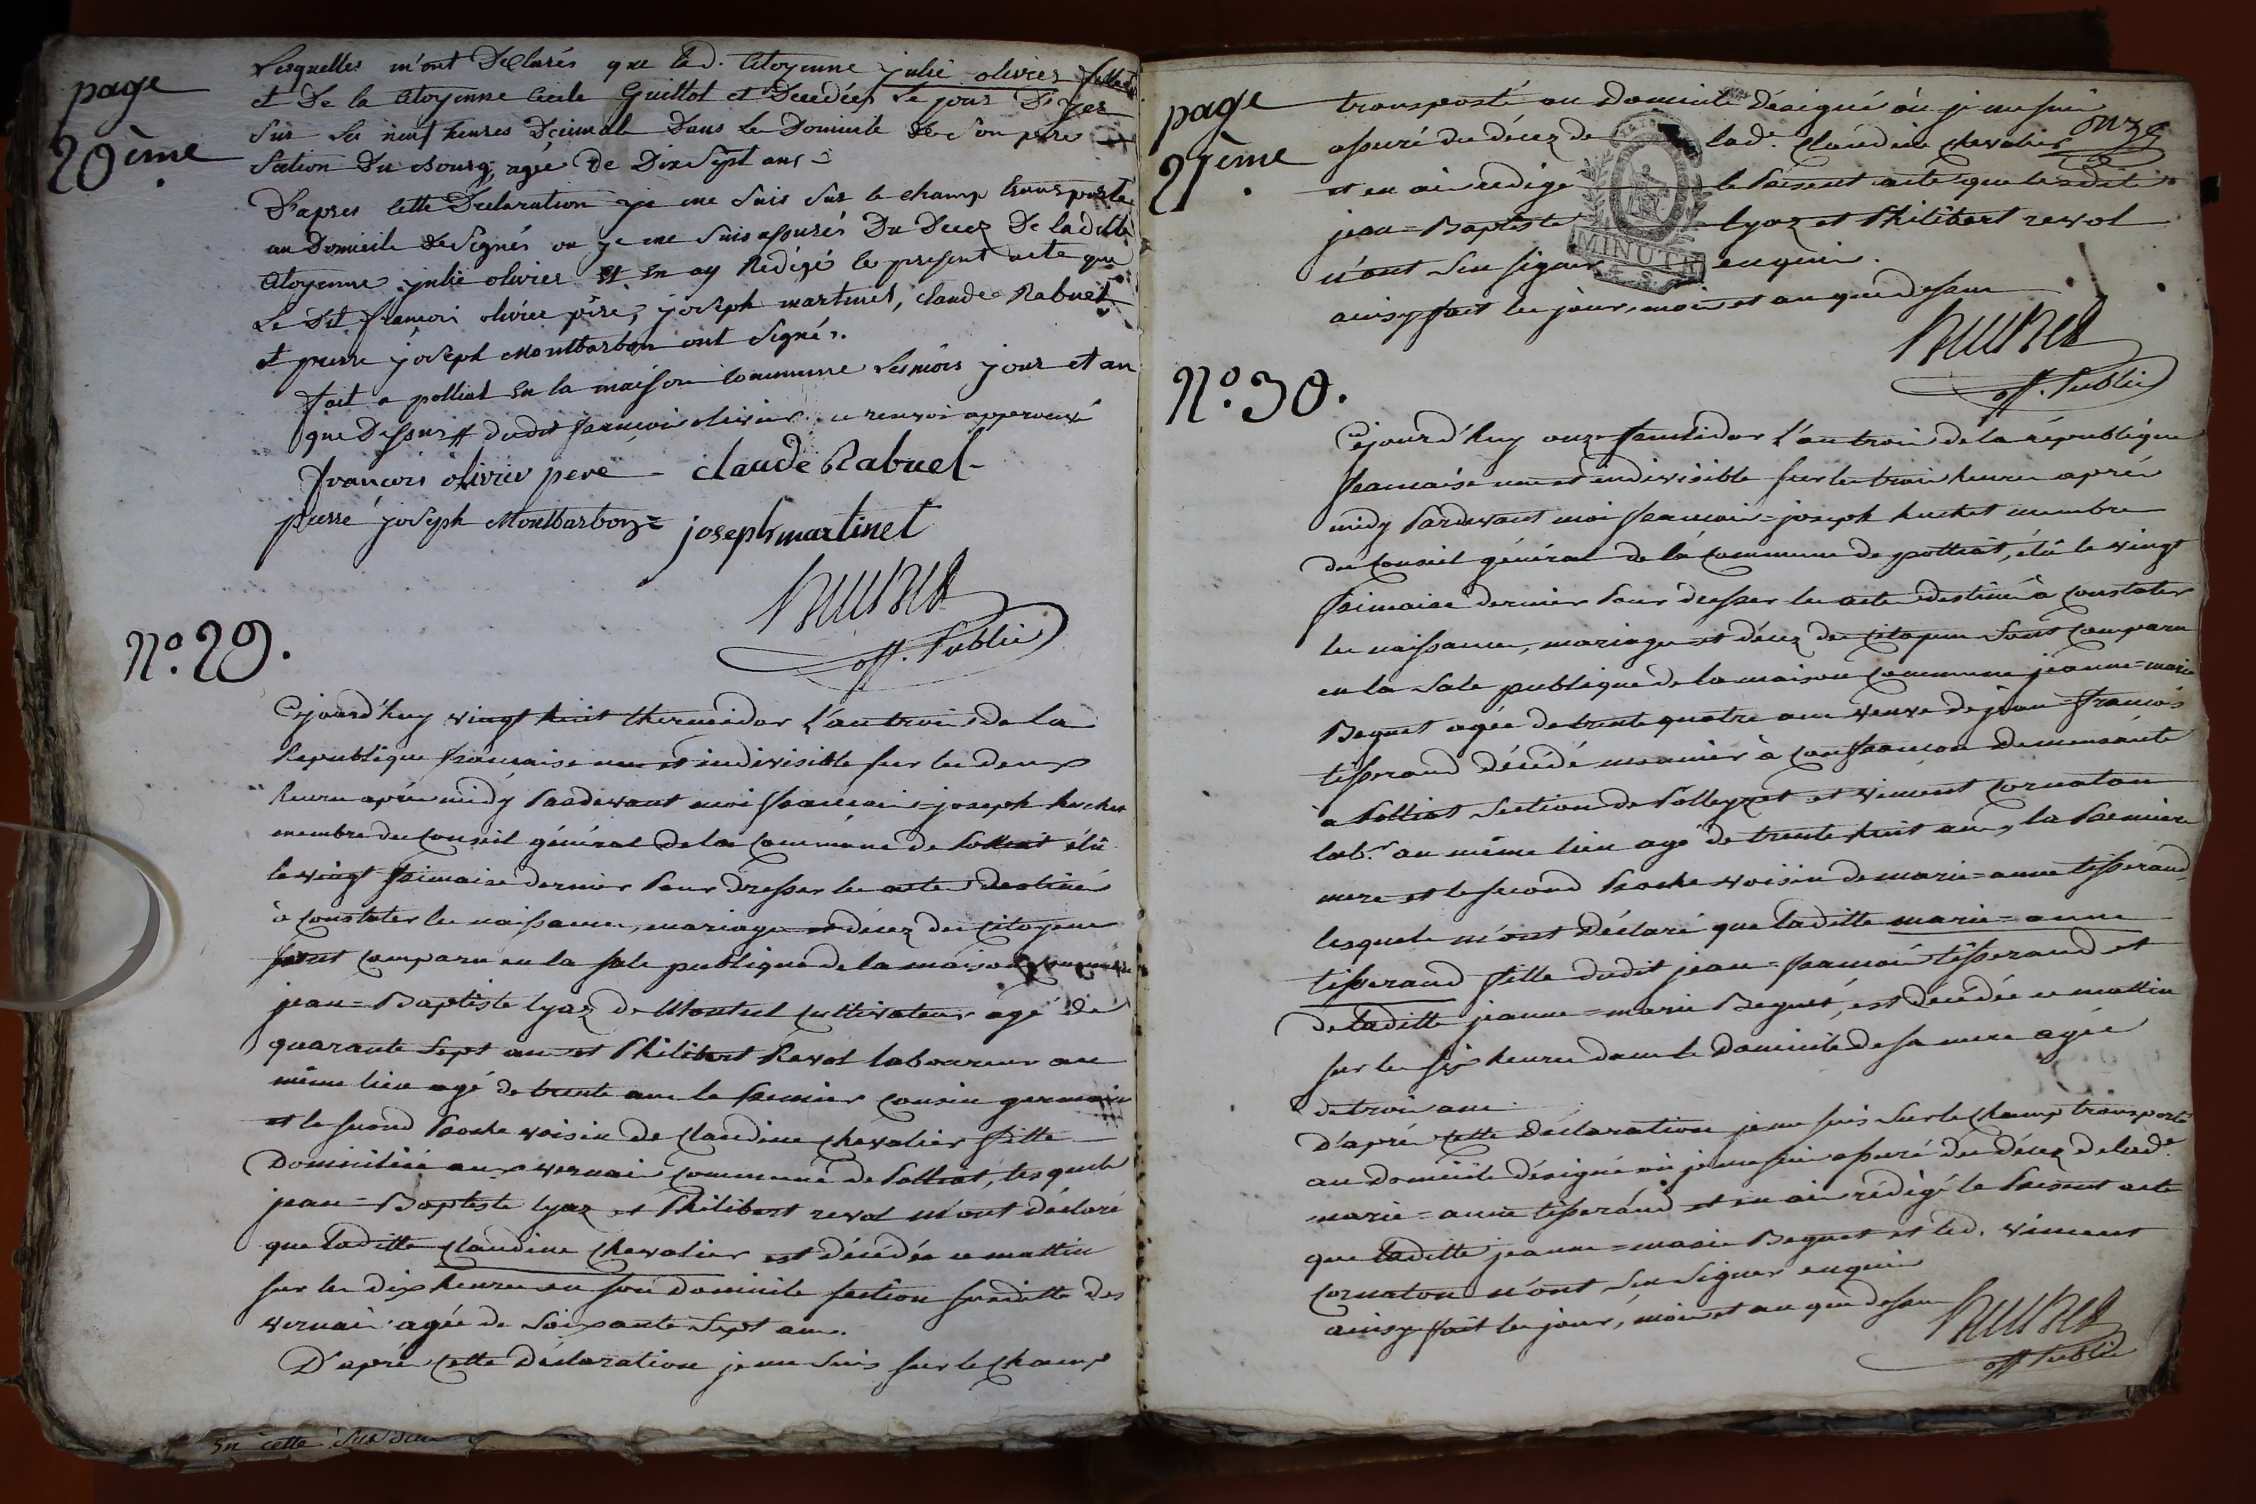 page
20ème
Lesquelles m'ont Déclarés que lad. Citoyenne julie olivier fille
et De la Citoyenne Cécile Guillot et Decedées Le jour D'yer
Sur les neuf heures Décimale Dans Le Domicile De Son pere
Section Du Bourg, agée de Dix Sept ans
D'apres Cette Declaration je me Suis Sur le champ transporté
au Domicile Designés ou je me Suis assurés Du Decez De laditte
Citoyenne julie olivier Et En ay Rédigé le present acte que
Le Dit françois olivier père, joseph martinet, claude Rabuel
et pierre joseph Montbarbon ont Signés.
fait a polliat En la maison Commune Les mois jour et an
que Dessus # dudit françois olivier ce renvoi approuvé
françois olivier pere claude Rabuel
pierre joseph Montbarbon joseph martinet
huchet
off. Public
N.º 29.
Cejourd'huy vingt huit thermidor l'an trois de la
Republique francaise une et indivisible sur les deux
heures après midÿ Pardevant moi francois=joseph huchet
membre du Conseil général de la Commune de Polliat élû
le vingt frimaire dernier Pour dresser les actes destinés
à Constater les naissances, mariages et décez des Citoyens
sont Comparu en la sale publique de la maison Commune
jean=Baptiste lyaz de Montul Cultivateur agé de
quarante Sept ans et Philibert Revol laboureur au
même lieu agé de trente ans le Premier Cousin germain
et le second Proche voisin de Claudine Chevalier fille
Domiciliée aux vernais Commune de Polliat, lesquels
jean=Baptiste lyaz et Philibert revol m'ont déclaré
que laditte Claudine Chevalier est décédée ce mattin
sur les dix heures en son domicile section susditte des
vernais agée de Soixante Sept ans.
D'après Cette Déclaration je me Suis sur le Champ
En cette
page
21ème
onze
transporté au Domicile désigné où je me suis
assuré du décez de lad.e Claudine Chevalier
et en ai redigé le Présent acte que lesdits
jean=Baptiste lyaz et Philibert revol
n'ont Seu signer enquis.
ainsy fait les jour, mois et an que dessus
MINUTE
huchet
off. Public
N.º 30.
Cejourd'huy onze fructidor l'an trois de la république
francaise une et indivisible sur les trois heures après
midy Pardevant moi francois=joseph huchet membre
du Conseil général de la Commune de polliat, élû le vingt
frimaire dernier Pour dresser les actes destinés à Constater
les naissances, mariages et décez des Citoyens Sont Comparu
en la Sale publique de la maison Commune jeanne=marie
Beguet agée de trente quatre ans veuve de jean=francois
tisserand décédé meunier à Confrancon demeurante
à Polliat Section de Polleyzet et vincent Cornaton
lab.r au même lieu agé de trente huit ans, la Premiere
mere et le second Proche voisin de marie=anne tisserand,
lesquels m'ont déclaré que laditte marie=anne
tisserand fille dudit jean=francois tisserand et
de laditte jeanne=marie Beguet, est décédée ce mattin
sur les six heures dans le domicile de sa mere agée
de trois ans.
D'après Cette déclaration je me suis Sur le Champ transporté
au domicile désigné où je me suis assuré du décez de lad.e
marie=anne tisserand et en ai rédigé le Présent acte
que laditte jeanne=marie Beguet et led. vincent
Cornaton n'ont Seu Signer enquis
ainsy fait les jour, mois et an que dessus
huchet
off. Public